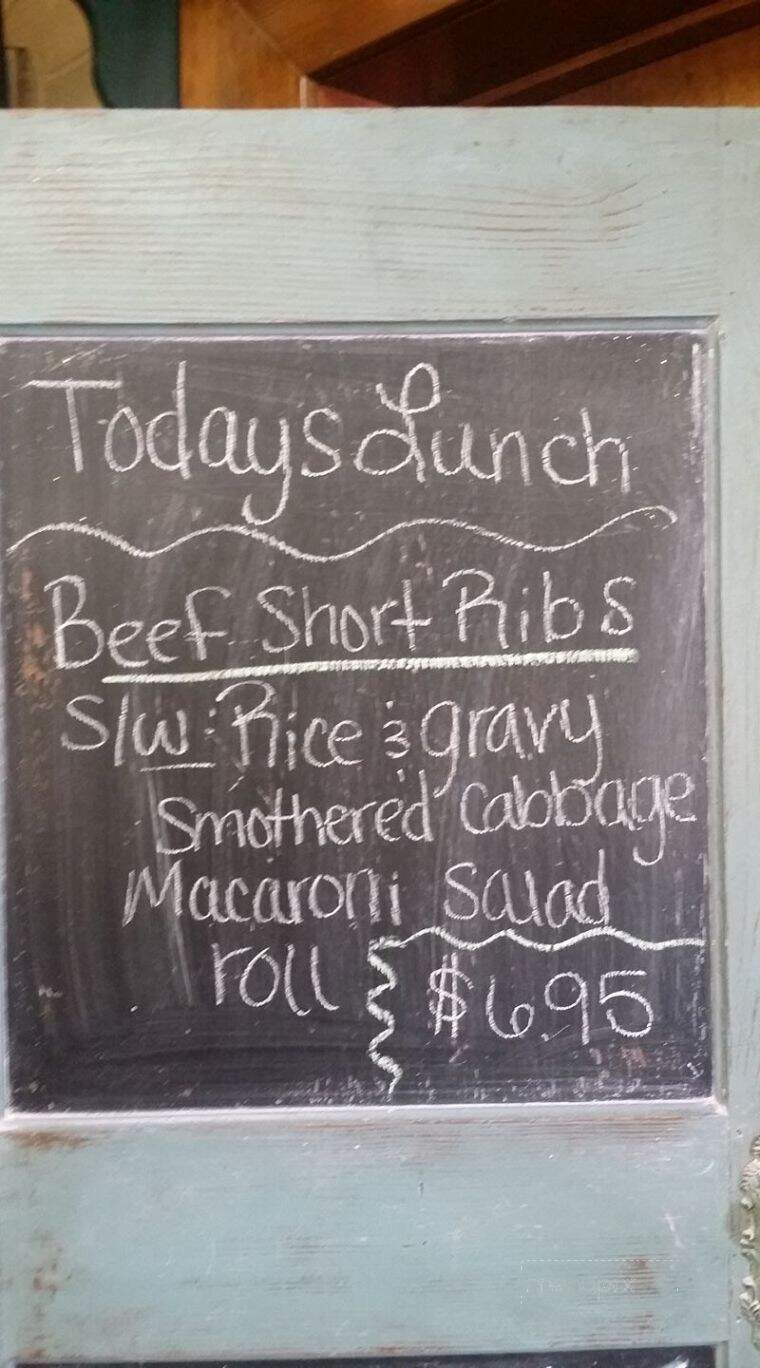 Todays Lunch
Beef Short Ribs
S/w: Rice & gravy
Smothered Cabbage
Macaroni Salad
roll
$6.95